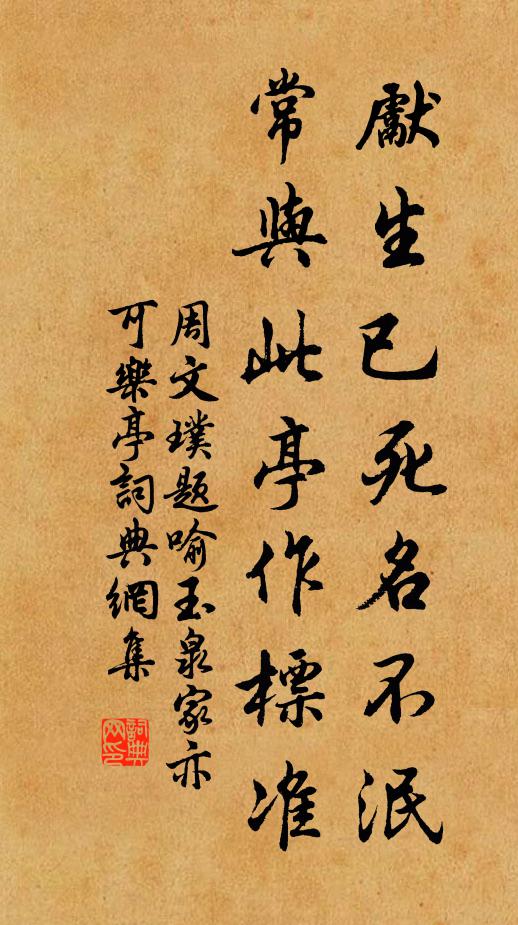 獻生已死名不泯
常與此亭作標准
周文璞題喻玉泉家亦
可樂亭詞典網集
詞典网印